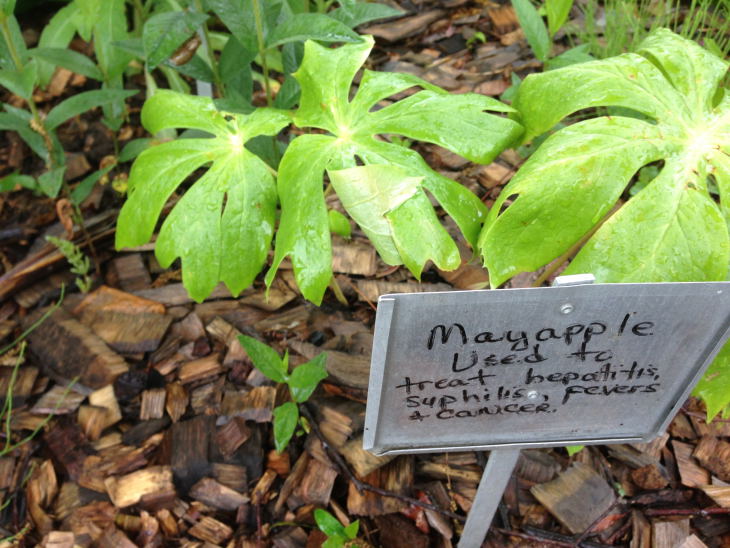 Mayapple
Used to
treat hepatitis,
syphilis, fevers
& cancer.